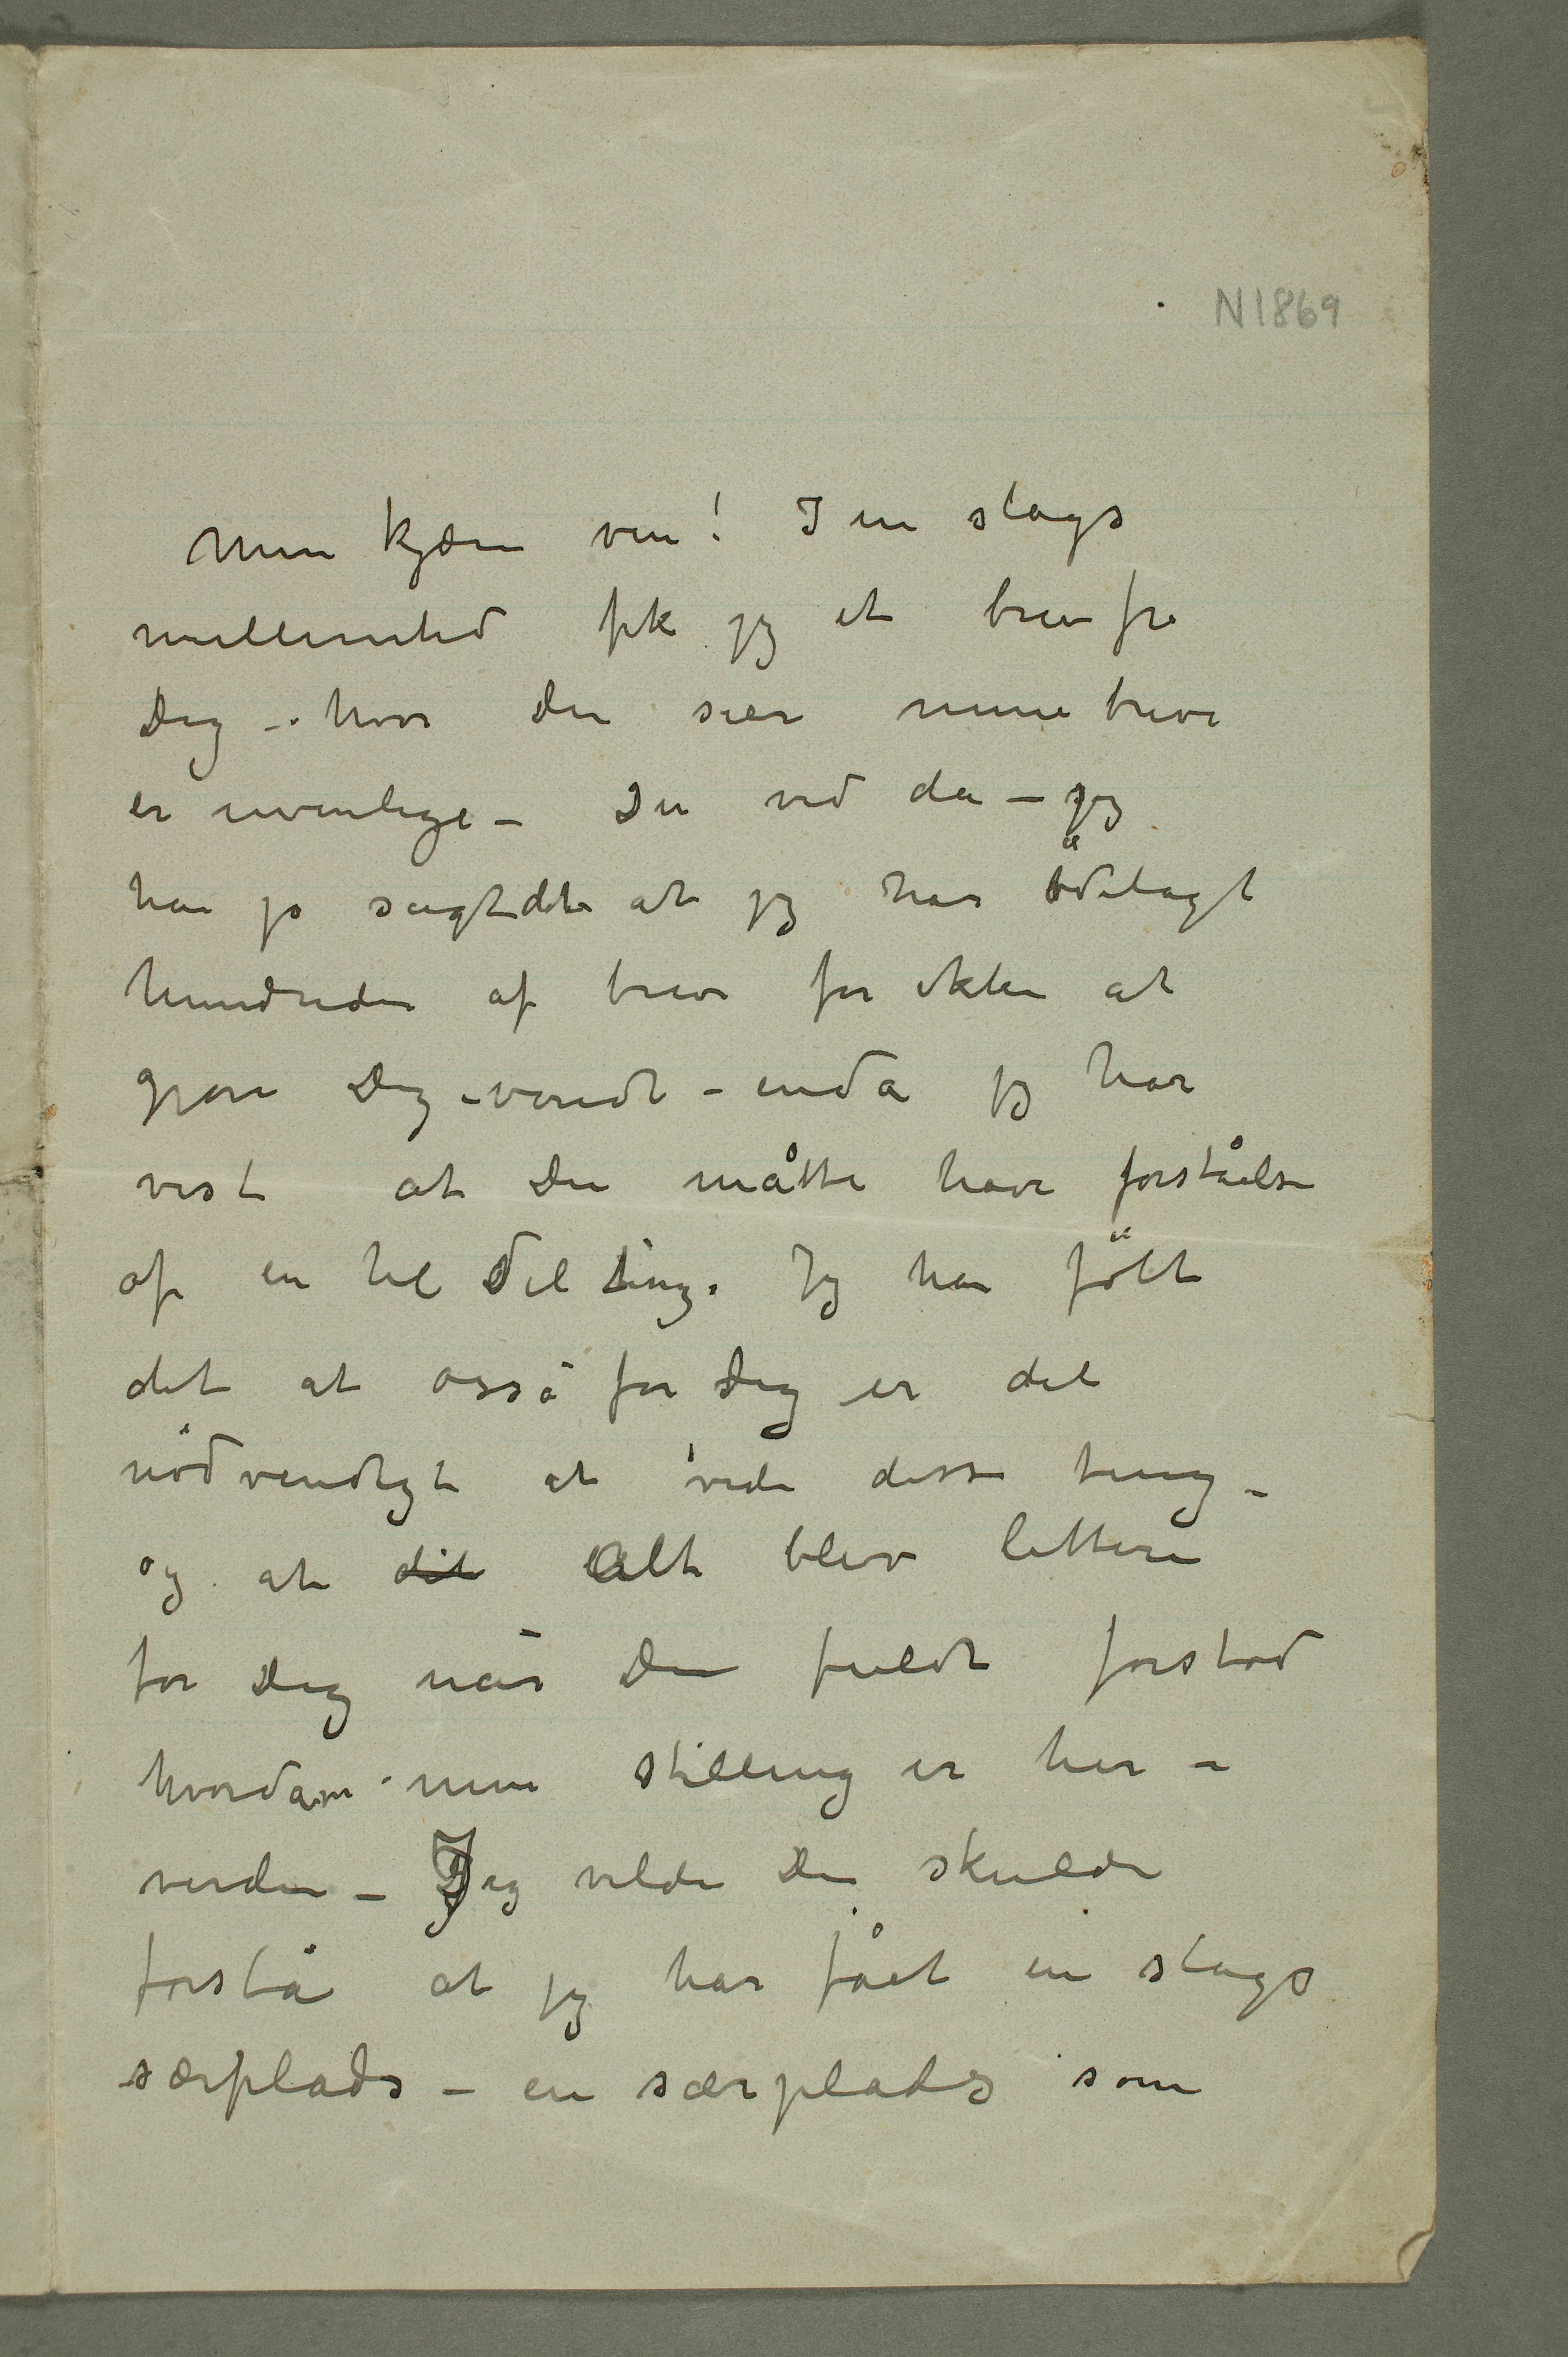 N1869
Min kjære ven! I en slags
mellemtid fik jeg et brev fra
Dig – hvor Du sier mine breve
er uvenlige – Du ved da – jeg
har jo sagt det at jeg har ödelagt
hundreder af breve for ikke at
gjøre Dig – vondt – enda jeg har
vist at Du måtte have forståelse
af en hel del ting. Jeg har fölt
det at også for Dig er det
nödvendigt at vide disse ting –
og at det Alt blev lettere
for Dig når Du fuldt forstod
hvordan min stilling er her i
verden – Jeg vilde Du skulde
forstå at jeg har fået en slags
særplads – en særplads som